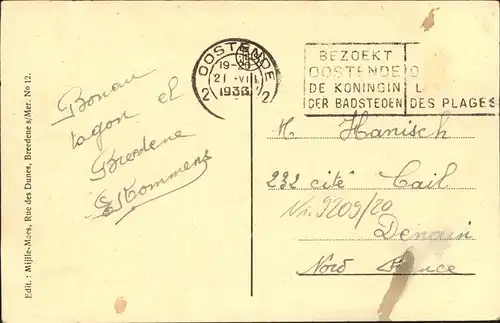 Edit. : Mijlle-Mares, Rue des Dunes, Breedene s/Mer. No 12.
Bonau
tagon el
Breedene
OOSTENDE
19-
21 VII
1933
2 2
BEZOEKT
OOSTENDE
DE KONINGIN
DER BADSTEDEN
DES PLAGES
M. Hanisch
232 cité Cail
Nr. 9209/20
Denain
Nord France